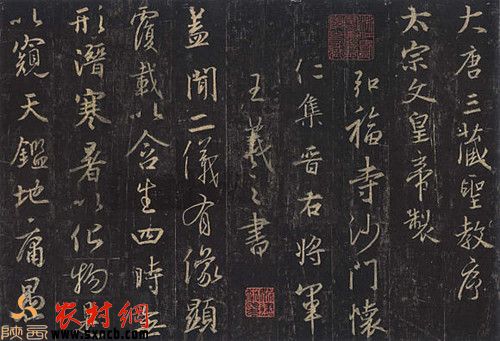 大唐三藏聖教序
太宗文皇帝製
弘福寺沙門懷
仁集晉右將軍
王羲之書
蓋聞二儀有像顯
覆載以含生四時無
形潛寒暑以化物是
以窺天鑑地庸愚
陕西
农村網
www.sxncb.com